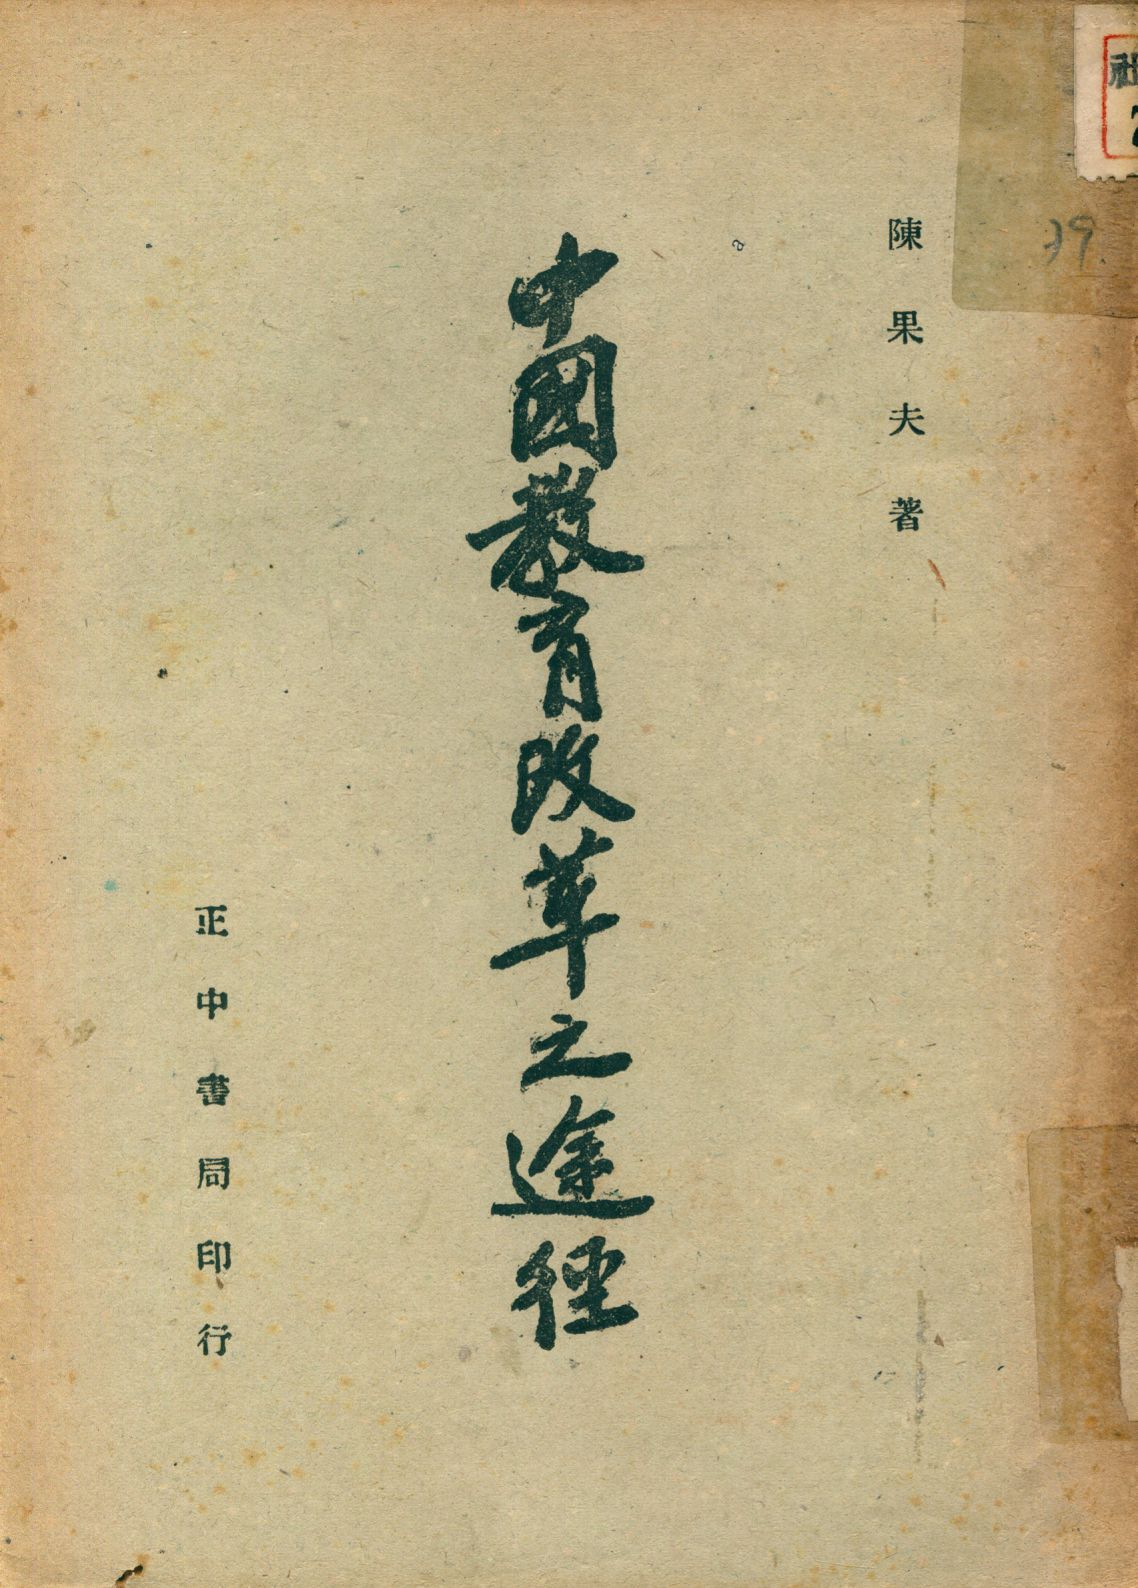 陳果夫著
中國教育改革之途徑
正中書局印行
社
19.